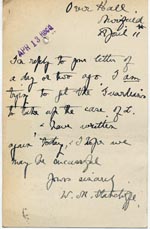 Over Hall,
Mirfield
April 11
APR 13
In reply to your letter of
a day or two ago. I am
trying to get the Guardians
to take up the case of it.
I have written
again today, I hope we
may be successful
Yours sincerely
W. H.